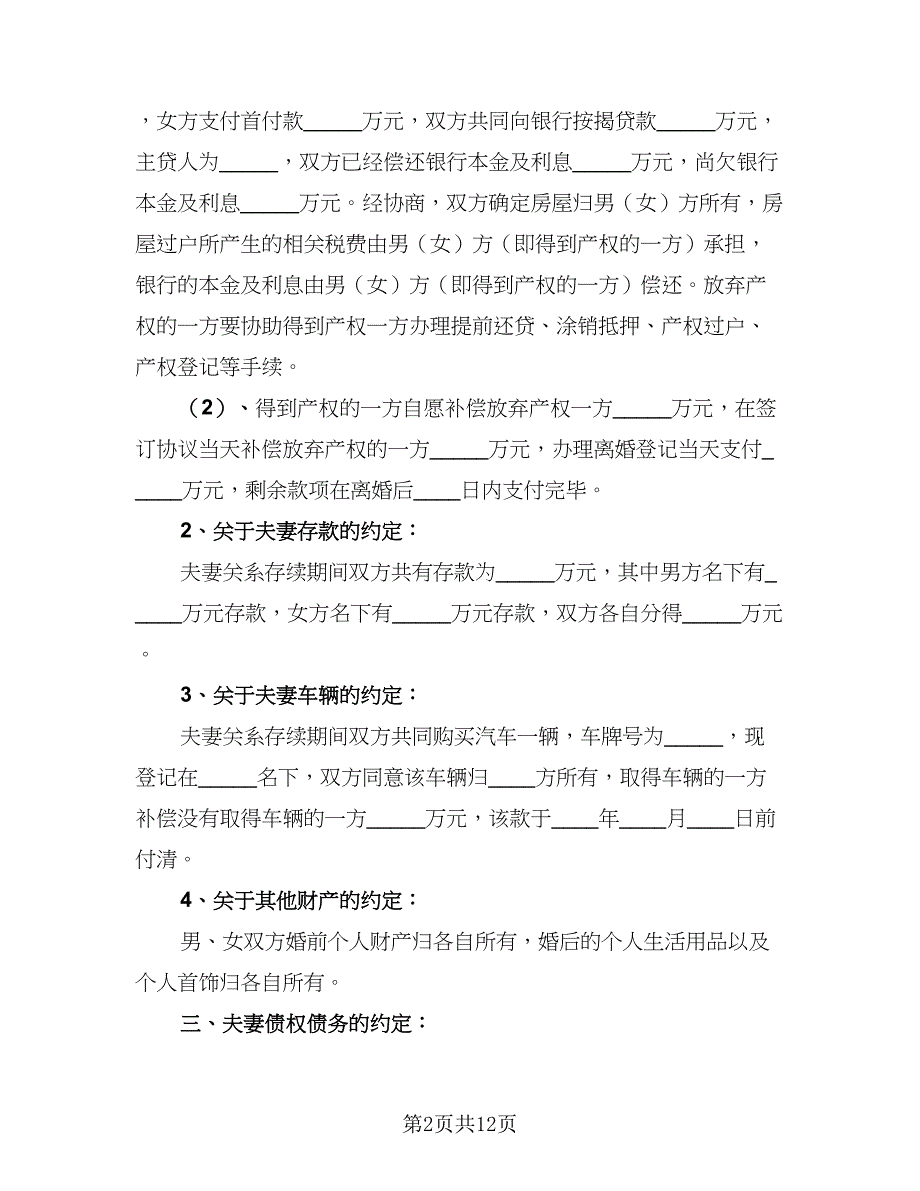 ，女方支付首付款_____万元，双方共同向银行按揭贷款_____万元，
主贷人为_____，双方已经偿还银行本金及利息_____万元，尚欠银行
本金及利息_____万元。经协商，双方确定房屋归男（女）方所有，房
屋过户所产生的相关税费由男（女）方（即得到产权的一方）承担，
银行的本金及利息由男（女）方（即得到产权的一方）偿还。放弃产
权的一方要协助得到产权一方办理提前还贷、涂销抵押、产权过户、
产权登记等手续。
（2）、得到产权的一方自愿补偿放弃产权一方_____万元，在签
订协议当天补偿放弃产权的一方_____万元，办理离婚登记当天支付_
____万元，剩余款项在离婚后____日内支付完毕。
2、关于夫妻存款的约定：
夫妻关系存续期间双方共有存款为_____万元，其中男方名下有_
____万元存款，女方名下有_____万元存款，双方各自分得_____万元
。
3、关于夫妻车辆的约定：
夫妻关系存续期间双方共同购买汽车一辆，车牌号为_____，现
登记在_____名下，双方同意该车辆归____方所有，取得车辆的一方
补偿没有取得车辆的一方_____万元，该款于____年____月____日前
付清。
4、关于其他财产的约定：
男、女双方婚前个人财产归各自所有，婚后的个人生活用品以及
个人首饰归各自所有。
三、夫妻债权债务的约定：
第2页共12页